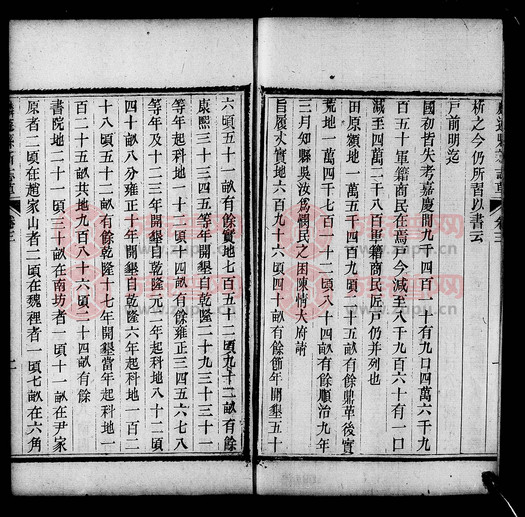 析之今仍所習以書云
戸前明迄
國初皆失考嘉慶間九千四百一十有九口四萬六千九
百五十軍籍商民在焉戸今減至八千九百六十有一口
減至四萬二千八百軍籍商民匠戸仍并列也
田原額地一萬五千四百九頃二十五畝有餘鼎革後實
荒地一萬四千七百一十二頃八十四畝有餘順治九年
三月知縣吳汝為憫民之困陳情大府請
旨履丈實地六百九十六頃四十畝有餘節年開墾五十
六頃五十一畝有餘實地七百五十二頃九十二畝有餘
康熙三十三四五等年開墾自乾隆二十九三十三十一
等年起科地一十頃一十四畝有餘雍正三四五六七八
等年及十二三年開墾自乾隆元二年起科地八十二頃
四十畝八分雍正十年開墾自乾隆六年起科地一百二
十八頃五十二畝有餘乾隆十七年開墾當年起科地一
百二十五畝共地九百八十六頃二十四畝有餘
書院地二十一頃三十畝在南坊者一頃十一畝在尹家
原者二頃在趙家山者二頃在魏裡者一頃七畝在六角
卷三